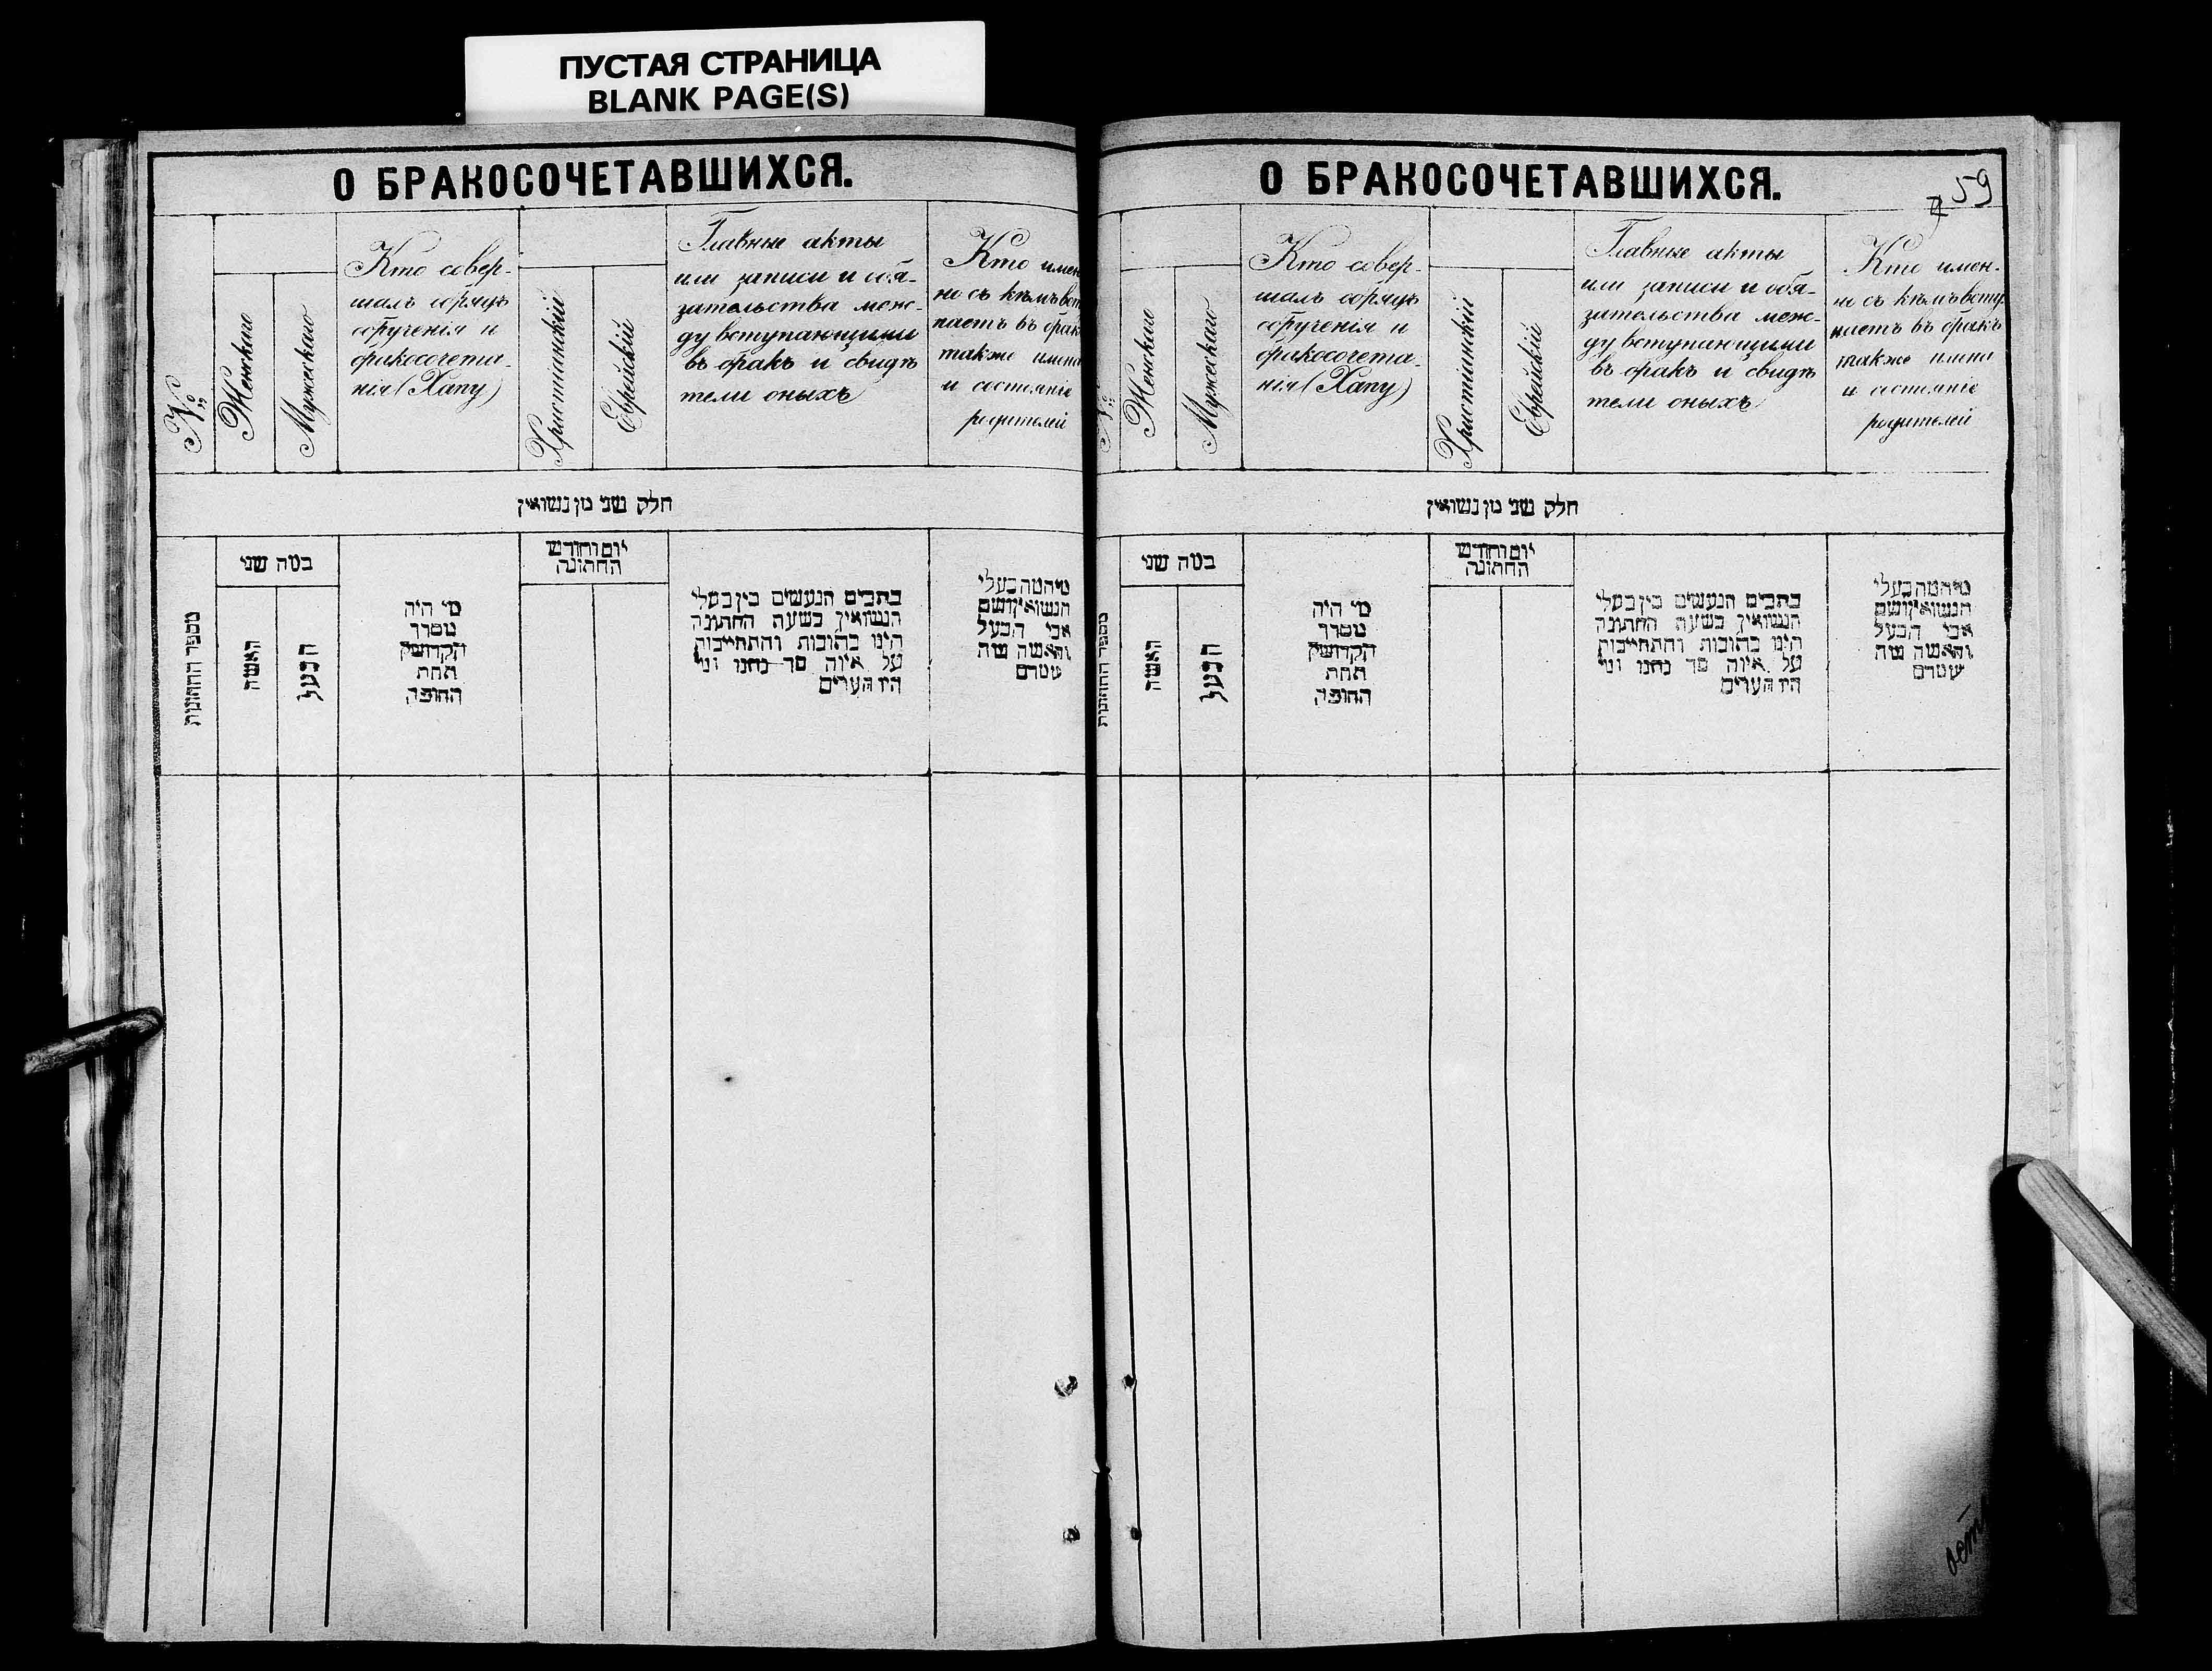 ПУСТАЯ СТРАНИЦА
BLANK PAGE(S)
О БРАКОСОЧЕТАВШИХСЯ.
№
Женскаго
Мужескаго
Кто совер-
шалъ обрядъ
обрученія и
бракосочета-
нія (Хапу)
Христіанскій
Еврейскій
Главные акты
или записи и обя-
зательства меж-
ду вступающими
въ бракъ и свидѣ
тели оныхъ
Кто имен
но съ кѣмъ вст
паетъ въ брак
также имена
и состояніе
родителей
חלק שני מן נשואין
מספר החתונות
כמה שני
האשה
הבעל
מי היה
מסדר
הקדושין
תחת
החופה
יום וחודש
החתונה
כתבים הנעשים בין בעלי
הנשואין בשעה החתונה
הינו כתובות והתחייבות
על איזה סך נתנו ומי
היו העדים
מי המה בעלי
הנשואין ושם
אבי הבעל
והאשה מה
שמדם
О БРАКОСОЧЕТАВШИХСЯ.
59
№
Женскаго
Мужескаго
Кто совер-
шалъ обрядъ
обрученія и
бракосочета
нія (Хапу)
Христіанскій
Еврейскій
Главные акты
или записи и обя-
зательства меж-
ду вступающими
въ бракъ и свидѣ
тели оныхъ
Кто имен-
но съ кѣмъ всту
паетъ въ бракъ
также имена
и состояніе
родителей
חלק שני מן נשואין
מספר החתונות
כמה שני
האשה
הבעל
מי היה
מסדר
הקדושין
תחת
החופה
יום וחודש
החתונה
כתבים הנעשים בין בעלי
הנשואין בשעה החתונה
הינו כתובות והתחייבות
על איזה סך נתנו ומי
היו העדים
מי המה בעלי
הנשואין ושם
אבי הבעל
והאשה מה
שמדם